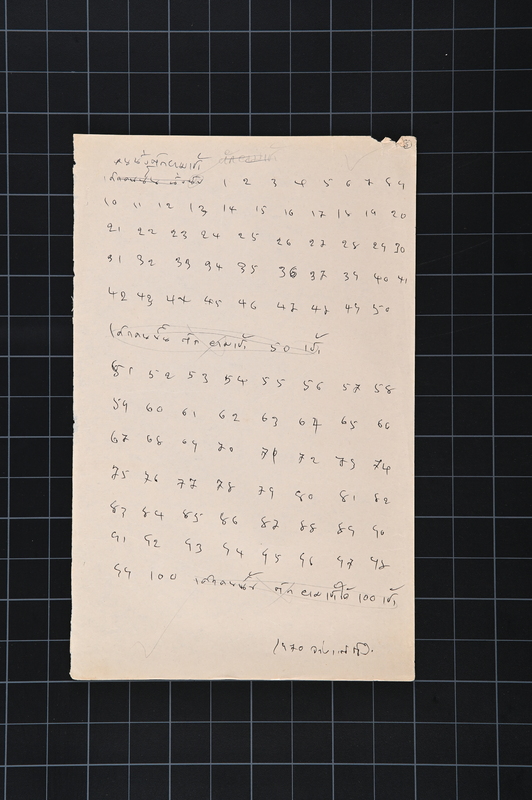 1 2 3 4 5 6 7 8 9
10 11 12 13 14 15 16 17 18 19 20
21 22 23 24 25 26 27 28 29 30
31 32 33 34 35 36 37 39 40 41
42 43 44 45 46 47 48 49 50
ยามเช้า 50 เช้า
51 52 53 54 55 56 57 58
59 60 61 62 63 64 65 66
67 68 69 70 71 72 73 74
75 76 77 78 79 80 81 82
83 84 85 86 87 88 89 90
91 92 93 94 95 96 97 98
99 100 ยามเช้าได้ 100 เช้า
1970 จ่าง แซ่ตั้ง.